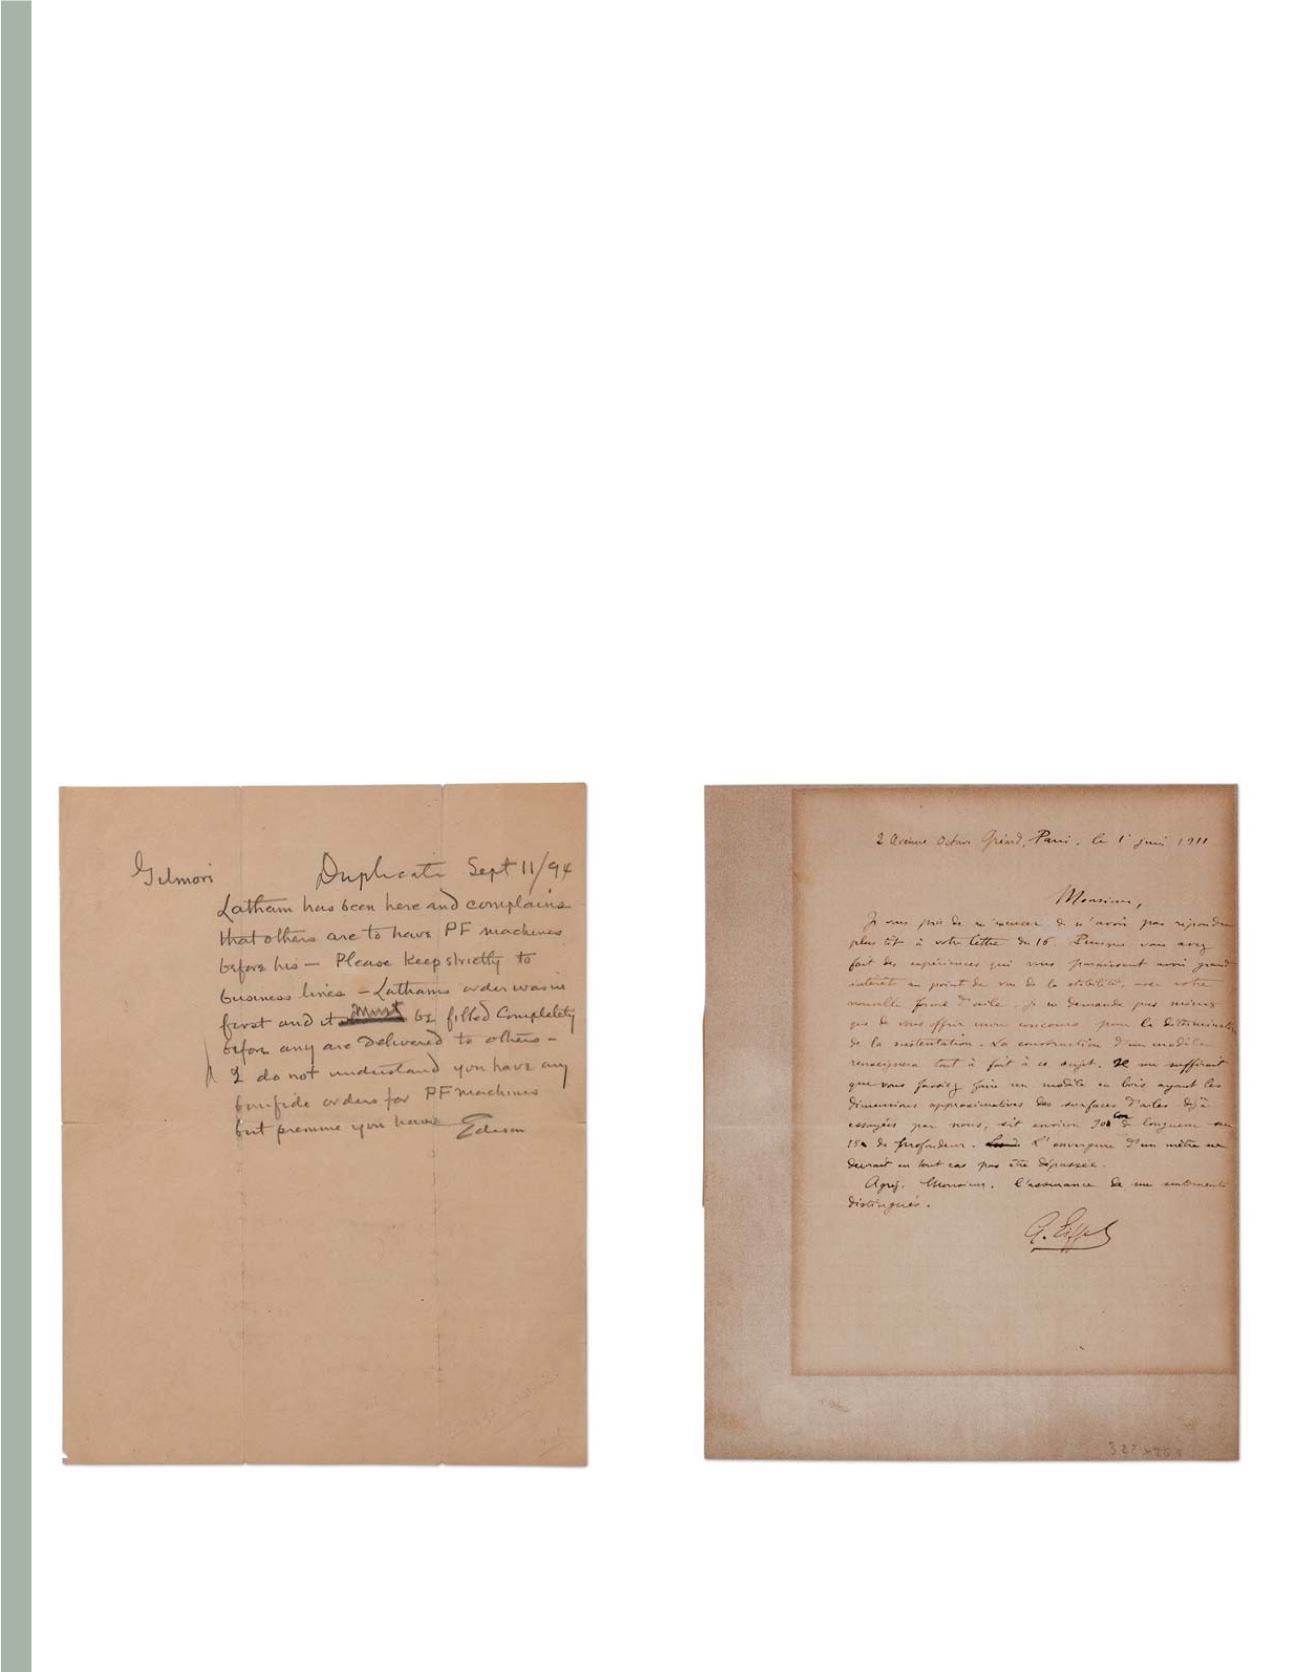 Gilmore Duplicate Sept 11/94
Latham has been here and complains
that others are to have PF machines
before his — Please Keep strictly to
business lines — Lathams order was in
first and it must be filled Completely
before any are Delivered to others —
I do not understand you have any
bonifide orders for PF machines
but presume you have Edison
2 Avenue Octave Gréard, Paris, le 1 juin 1911
Monsieur,
Je vous prie de m'excuser de n'avoir pas répondu
plus tôt à votre lettre du 16. Puisque vous avez
fait des expériences qui vous paraissent avoir grand
intérêt au point de vue de la stabilité, avec votre
nouvelle forme d'aile, je ne demande pas mieux
que de vous offrir mon concours pour la détermination
de la sustentation. La construction d'un modèle
renseignera tout à fait à ce sujet. Il me suffirait
que vous fassiez faire un modèle en bois ayant les
dimensions approximatives des surfaces d'ailes déjà
essayées par nous, soit environ 90 de longueur sur
15 de profondeur. L'envergure d'un mètre ne
devrait en tout cas pas être dépassée.
Agréez, Monsieur, l'assurance de mes sentiments
distingués.
G. Eiffel